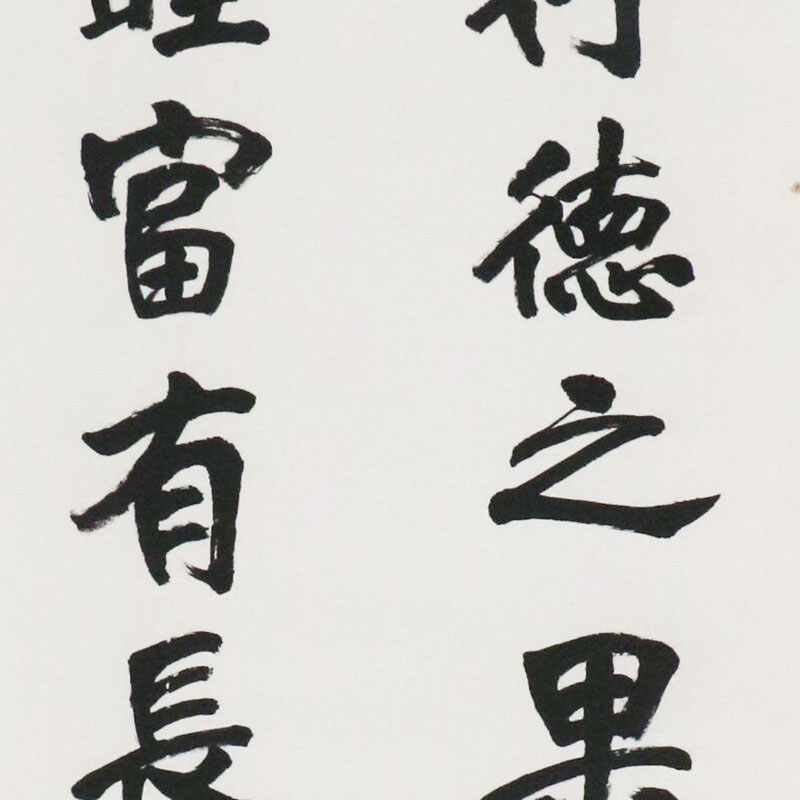 徳之果
富有長